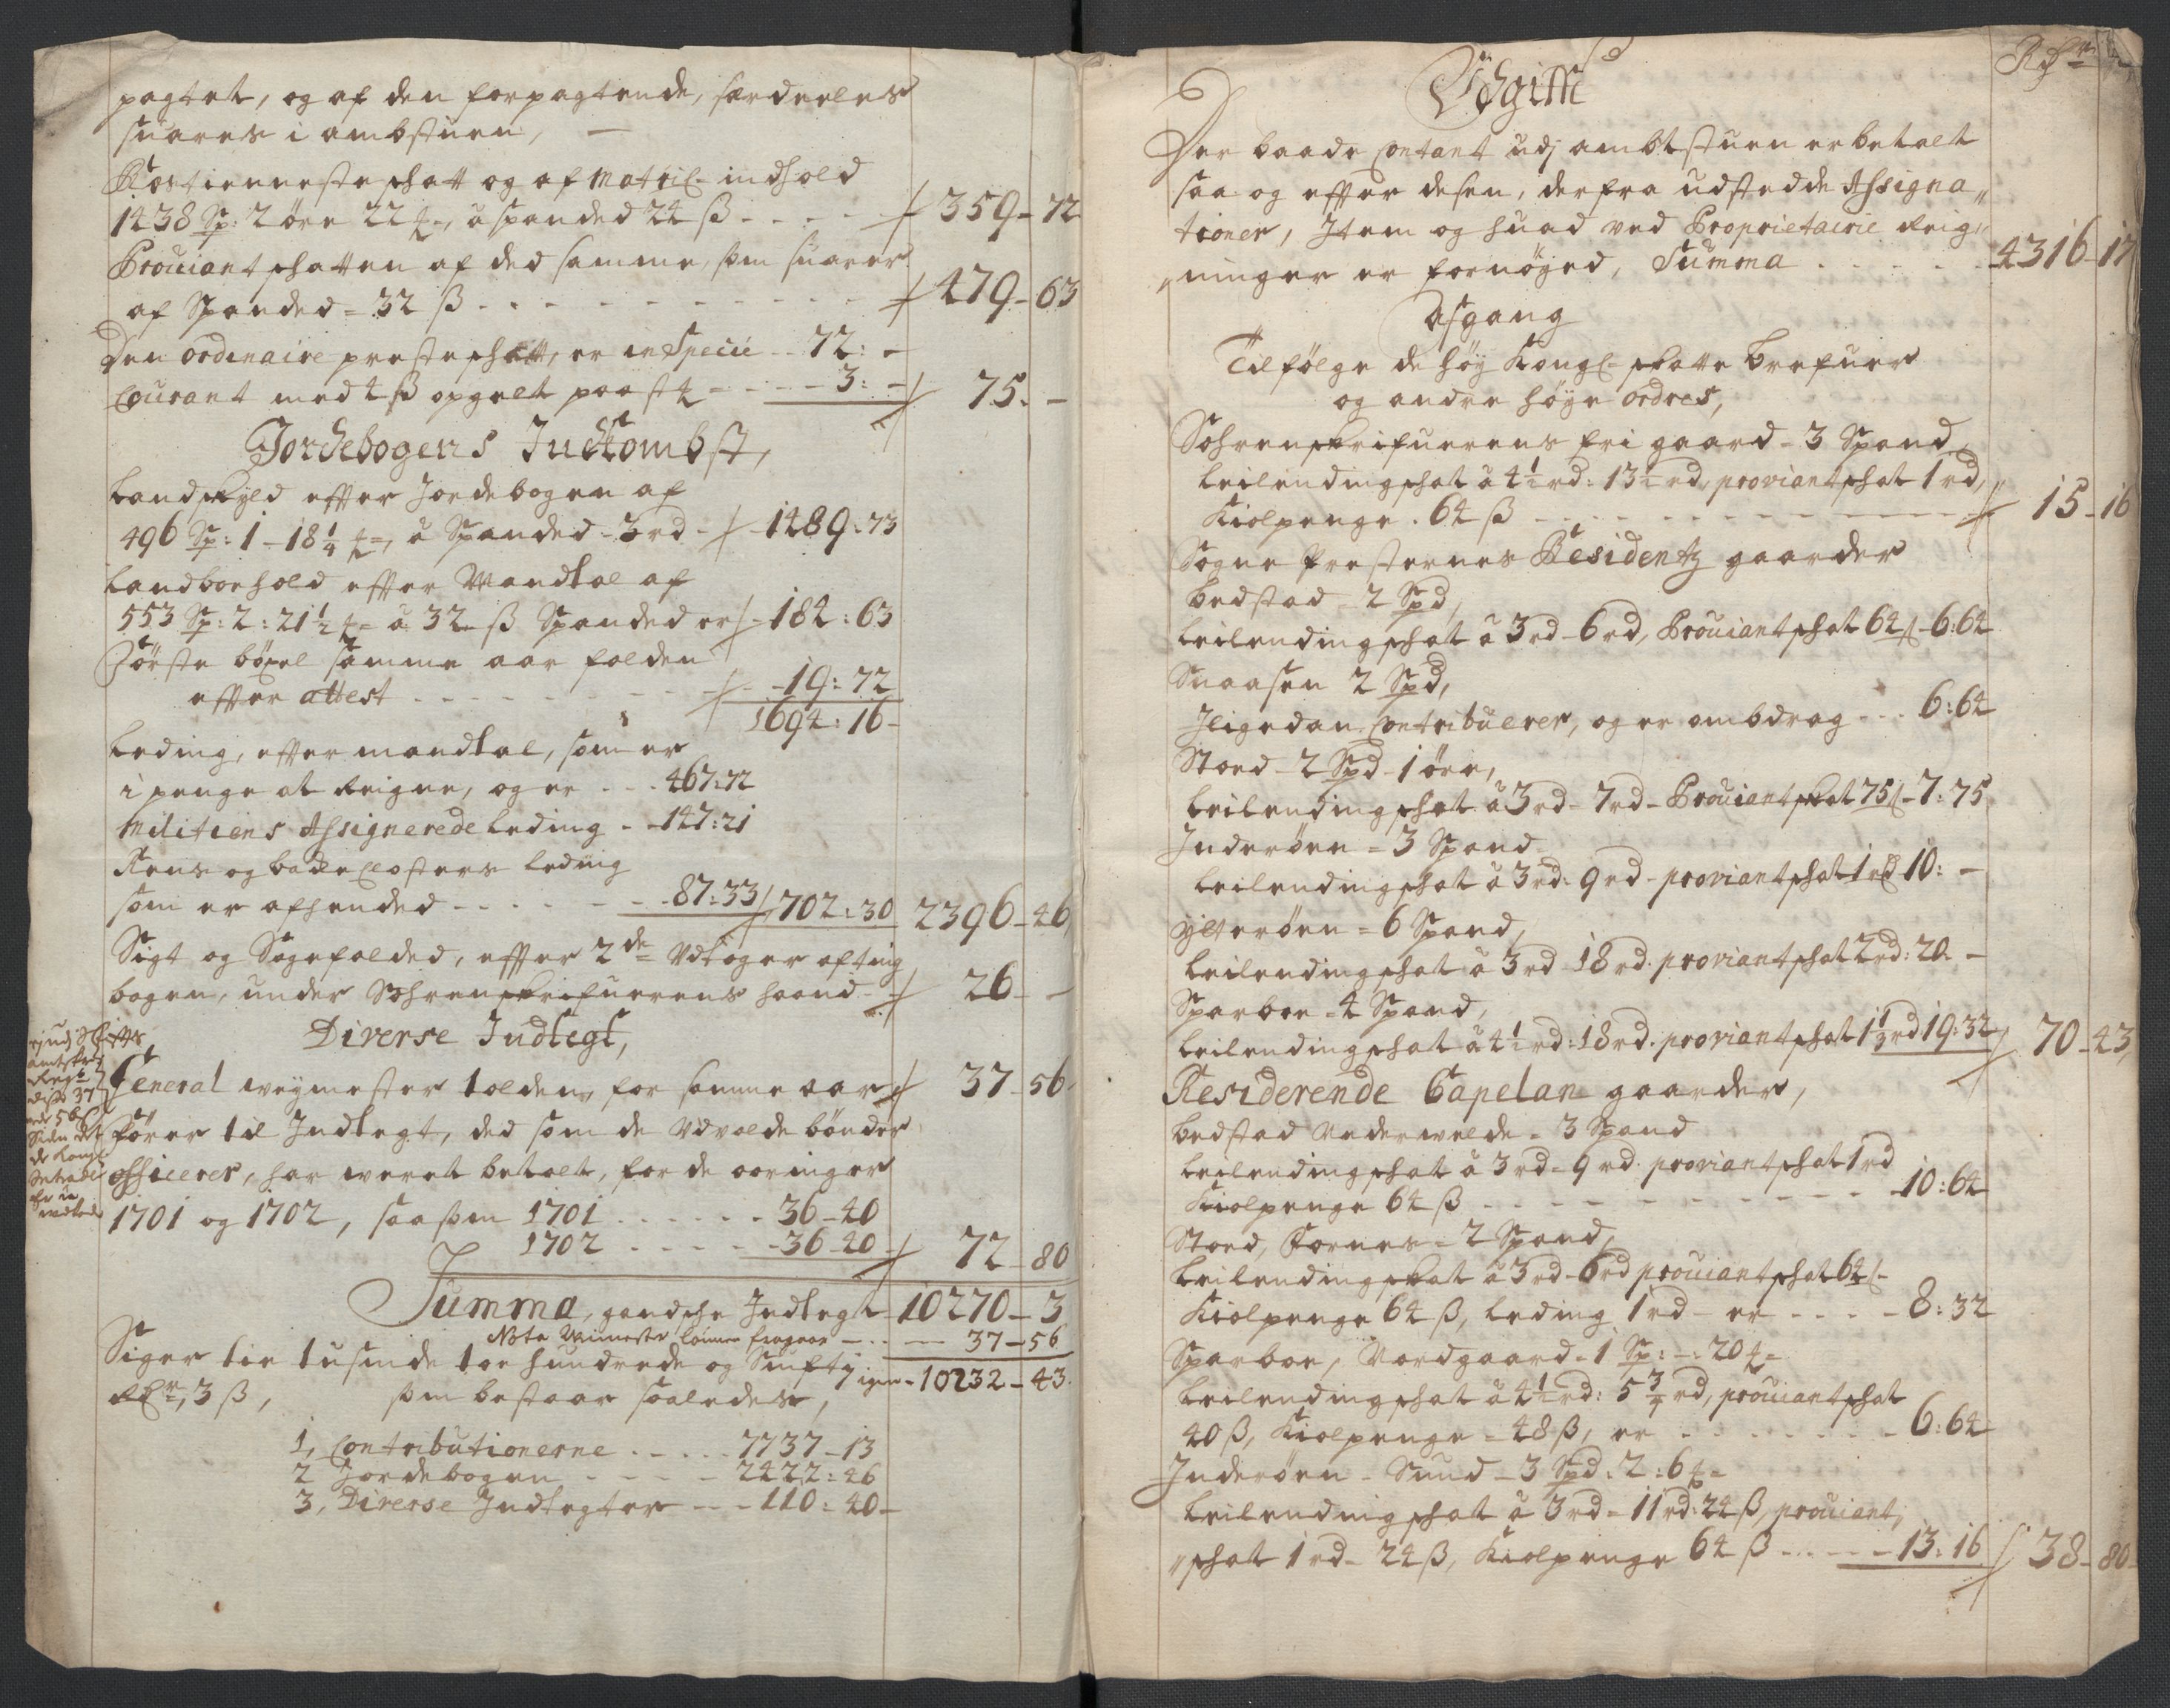 pagtet, og af den forpagtende, særdeeles
suares i ambstuen,
Rostienneste schatt og af Matric- indhold
1438 Sp: 2 öre 22 , à spanded 24 ß - - - - 359 - 72
Proviant schatten af ded samme, som suarer
af Spanded - 32 ß - - - - - - - - 479 - 63
Den ordinaire presteschatt, er in Specie - - 72: -
Courant med 4 ß opgelt paa st - - - - 3: - 75. -
Jordebogens Indkombst,
Landskyld effter Jordebogen af
496 Sp: 1 - 18 1/4 , à Spanded - 3 rd - 1489: 73
Landboehold effter Mandtal af
553 Sp: 2: 21 1/2 à 32 ß Spanded er - 184: 63
Förste böxel samme aar falden
effter attest - - - - - - - - 19: 72
1694: 16 -
Leding, effter mandtal, som er
i penge at Reigne, og er - - - 467: 72
Militiens Assignerede Leding - - 147: 21
Reins og bacheClosters Leding
som er afhended - - - - - - 87: 33 702: 30 2396 - 46
Sigt og Sagefalded, effter 2de Udtoger af ting
bogen, under Sohrenskrifuerens haand - 26 - -
Diverse Indtegt,
General weymester tolden, for samme aar 37 - 56
Förer til Indtegt, ded som de Udvalde bönder
officerer, har weret betalt, for de aaringer
1701 og 1702, saasom 1701 - - - - - - 36 - 40
1702 - - - - - 36 - 40 - 72 - 80
Summa, gandsche Indtegt - 10270 - 3
Nota Weimester lönnen fragaar - - - 37 - 56
Siger tie tusinde toe hundrede og Siufty igien - 10232 - 43
Rdr, 3 ß, som bestaar saaledes,
1, Contributionerne - - - - - 7737 - 13
2 Jordebogen - - - - - 2422: 46
3, Diverse Indtegter - - - 110: 40 -
Rdr
Udgifft
Der baade Contant udj ambtstuen er betalt
saa og effter desen, derfra udstedde Assigna
tioner, Item og huad ved Proprietairie Reig
ninger er fornöyed, Summa - - - - - 4316 - 17
Afgang
Tilfölge de höy Kongl- skatte Brefuer
og andre höye ordres,
Sohrenskrifuerens fri gaard - 3 Spand,
Leilendingschat à 4 1/2 rd: 13 1/2 rd, proviantschat 1 rd,
Kiolpenge. 64 ß - - - - - - - - - - 15 - 16
Sogne Presternes Residentz gaarder
Bedstad - 2 Spd,
Leilendingschat à 3 rd - 6 rd, Proviantschat 64 ß - 6: 64
Snaasen 2 Spd,
Jligedan Contribuerer, og er ombdrag - - - 6: 64
Stoed - 2 Spd - 1 öre,
Leilendingschat à 3 rd - 7 rd - Proviantskat 75 ß - 7: 75
Inderöen - 3 Spand
Leilendingschat à 3 rd: 9 rd - proviantschat 1 rd 10: -
Ytteröen - 6 Spand,
Leilendingschat à 3 rd 18 rd. proviantschat 2 rd: 20. -
Sparboe - 4 Spand,
Leilendingschat à 4 1/2 rd: 18 rd. proviantschat 1 1/3 rd 19: 32 70 - 43
Residerende Capelan gaarder,
Bedstad Underwelde - 3 Spand
Leilendingschat à 3 rd - 9 rd. proviantschat 1 rd
Kiolpenge 64 ß - - - - - - - - - - 10: 64
Stoed, Fornes - 2 Spand,
Leilendingskat à 3 rd - 6 rd proviantschat 64 ß -
Kiolpenge 64 ß, Leding 1 rd - er - - - - 8: 32
Sparboe, Nordgaard - 1 Sp: -: 20
Leilendingschat à 4 1/2 rd: 5 3/4 rd, proviantschat
40 ß, Kiolpenge - 48 ß, er - - - - - - - - 6: 64
Inderöen - Sund - 3 Spd. 2: 6
Leilendingschat à 3 rd - 11 rd: 24 ß, proviant
schat 1 rd - 24 ß, Kiolpenge 64 ß - - - - - 13: 16 38 - 80